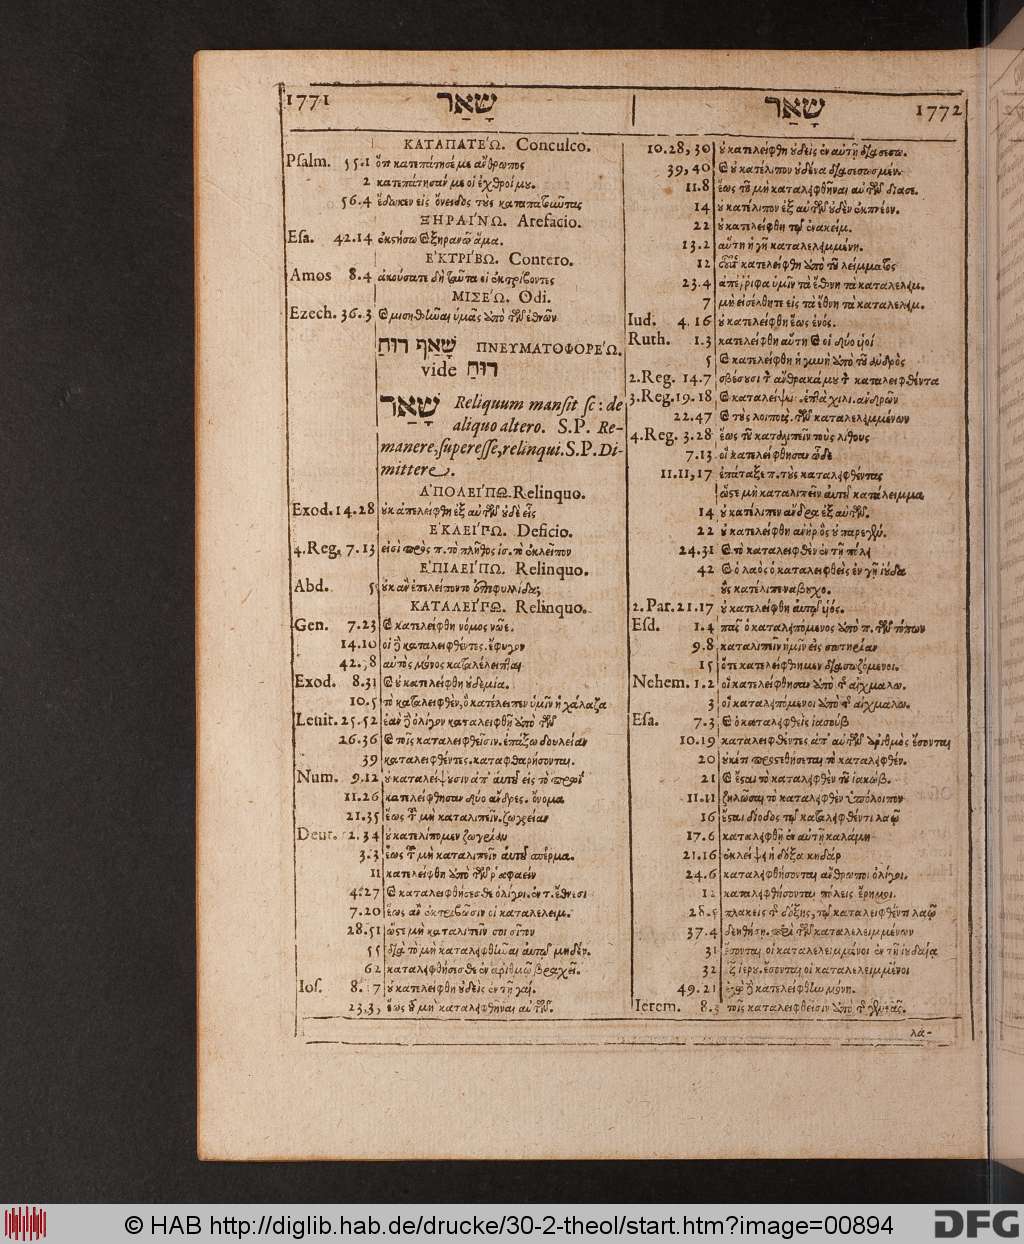 1771 שָׁאַר
שָׁאַר 1772
ΚΑΤΑΠΑΤΕΏ. Conculco.
Psalm. 55.1 ὅτι κατεπάτησέ με ἄνθρωπος
2 κατεπάτησάν με οἱ ἐχθροί μου.
56.4 ἔδωκεν εἰς ὄνειδος τοὺς καταπατοῦντας
ΞΗΡΑΙΝΩ. Arefacio.
Esa. 42.14 ἐκστήσω καὶ ξηρανῶ ἅμα.
ΕΚΤΡΙΒΩ. Contero.
Amos 8.4 ἀκούσατε δὴ ταῦτα οἱ ἐκτρίβοντες
ΜΙΣΕΏ. Odi.
Ezech. 36.3 καὶ μισηθῆναι ὑμᾶς ὑπὸ τῶν ἐθνῶν
שָׁאַף רוּחַ ΠΝΕΥΜΑΤΟΦΟΡΕΏ.
vide רוּחַ
שָׁאַר Reliquum mansit sc: de
aliquo altero. S.P. Re-
manere, superesse, relinqui. S.P. Di-
mittere.
ΑΠΟΛΕΙΠΩ. Relinquo.
Exod. 14.28 οὐκ ἀπελείφθη ἐξ αὐτῶν οὐδὲ εἷς
ΕΚΛΕΙΠΩ. Deficio.
4. Reg. 7.13 εἰσὶ πρὸς π. τὸ πλῆθος ἰσ. τὸ ἐκλεῖπον
ΕΠΙΛΕΙΠΩ. Relinquo.
Abd. 5 οὐκ ἂν ἐπελείποντο ἐπιφυλλίδα;
ΚΑΤΑΛΕΙΠΩ. Relinquo.
Gen. 7.23 καὶ κατελείφθη μόνος νῶε.
14.10 οἱ δὲ καταλειφθέντες. ἔφυγον
42.38 αὐτὸς μόνος καταλέλειπται
Exod. 8.31 καὶ οὐ κατελείφθη οὐδεμία.
10.5 τὸ καταλειφθὲν, ὃ κατέλειπεν ὑμῖν ἡ χάλαζα
Leuit. 25.52 ἐὰν δὲ ὀλίγον καταλειφθῇ ὑπὸ τῶν
26.36 καὶ τοῖς καταλειφθεῖσιν. ἐπάξω δουλείαν
39 καταλειφθέντες. καταφθαρήσονται.
Num. 9.12 οὐ καταλείψουσιν ἀπ' αὐτοῦ εἰς τὸ πρωῒ
11.26 κατελείφθησαν δύο ἄνδρες. ὄνομα
21.35 ἕως τοῦ μὴ καταλιπεῖν. ζωγρείαν
Deut. 2.34 οὐ κατελίπομεν ζωγρίαν
3.3 ἕως τοῦ μὴ καταλιπεῖν αὐτοῦ σπέρμα.
11 κατελείφθη ὑπὸ τῶν ῥαφαεὶν
4.27 καὶ καταλειφθήσεσθε ὀλίγοι. ἐν τ. ἔθνεσι
7.20 ἕως ἂν ἐκτριβῶσιν οἱ καταλελειμ.
28.51 ὥστε μὴ καταλιπεῖν σοι σῖτον
55 διὰ τὸ μὴ καταλειφθῆναι αὐτῷ μηδέν.
62 καταλειφθήσεσθε ἐν ἀριθμῷ βραχεῖ.
Ios. 8.17 οὐ κατελείφθη οὐδεὶς ἐν τῇ γαί.
23.3, ἕως τοῦ μὴ καταλειφθῆναι αὐτῶν.
10.28, 30 οὐ κατελείφθη οὐδεὶς ἐν αὐτῇ διασεσω.
39, 40 καὶ οὐ κατέλιπον οὐδένα διασεσωσμέν.
11.8 ἕως τοῦ μὴ καταλειφθῆναι αὐτῶν διασε.
14 οὐ κατέλιπον ἐξ αὐτῶν οὐδὲν ἐκπνέον.
22 οὐ κατελείφθη τῶν ἐνακείμ.
13.2 αὕτη ἡ γῆ καταλελειμμένη.
12 οὗτος κατελείφθη ὑπὸ τοῦ λείμματος
23.4 ἀπέρριφα ὑμῖν τὰ ἔθνη τὰ καταλελειμ.
7 μὴ εἰσέλθητε εἰς τὰ ἔθνη τὰ καταλελειμ.
Iud. 4.16 οὐ κατελείφθη ἕως ἑνός.
Ruth. 1.3 κατελείφθη αὕτη καὶ οἱ δύο υἱοί
5 καὶ κατελείφθη ἡ γυνὴ ὑπὸ τοῦ ἀνδρὸς
2. Reg. 14.7 σβέσουσι τὸν ἄνθρακά μου τὸν καταλειφθέντα
3. Reg. 19.18 καὶ καταλείψω. ἑπτὰ χιλι. ἀνδρῶν
22.47 καὶ τοὺς λοιποὺς. τῶν καταλελειμμένων
4. Reg. 3.28 ἕως τοῦ καταλιπεῖν τοὺς λίθους
7.13 οἳ κατελείφθησαν ὧδε
11.11, 17 ἐπάταξε π. τοὺς καταλειφθέντας
ὥστε μὴ καταλιπεῖν αὐτοῦ κατάλειμμα
14 οὐ κατέλιπεν ἄνδρα ἐξ αὐτῶν.
22 οὐ κατελείφθη ἀνὴρ ὃς οὐ παρεγέν.
24.31 καὶ τὸ καταλειφθὲν ἐν τῇ πόλει
42 καὶ ὁ λαὸς ὁ καταλειφθεὶς ἐν γῇ ἰούδα
οὓς κατέλιπε ναβουχο.
2. Par. 21.17 οὐ κατελείφθη αὐτῷ υἱός.
Esd. 1.4 πᾶς ὁ καταλειπόμενος ὑπὸ π. τῶν τόπων
9.8 καταλιπεῖν ἡμῖν εἰς σωτηρίαν
15 ὅτι κατελείφθημεν διασωζόμενοι.
Nehem. 1.2 οἳ κατελείφθησαν ὑπὸ τῆς αἰχμαλω.
3 οἱ καταλειπόμενοι ὑπὸ τῆς αἰχμαλω.
Esa. 7.3 καὶ ὁ καταλειφθεὶς ἰασοὺβ
10.19 καταλειφθέντες ἀπ' αὐτῶν ἀριθμὸς ἔσονται
20 οὐκέτι προστεθήσεται τὸ καταλειφθέν.
21 καὶ ἔσται τὸ καταλειφθὲν τοῦ ἰακώβ.
11.11 ζηλῶσαι τὸ καταλειφθὲν ὑπόλοιπον
16 ἔσται δίοδος τῷ καταλειφθέντι λαῷ
17.6 καταλειφθῇ ἐν αὐτῇ καλάμη
21.16 ἐκλείψει ἡ δόξα κηδάρ
24.6 καταλειφθήσονται ἄνθρωποι ὀλίγοι.
12 καταλειφθήσονται πόλεις ἔρημοι.
28.5 πλακεὶς τῆς δόξης, τῷ καταλειφθέντι λαῷ
37.4 δεηθήσῃ. περὶ τῶν καταλελειμμένων
31 ἔσονται οἱ καταλελειμμένοι ἐν τῇ ἰουδαίᾳ
32 ἐξ ἱερου. ἔσονται οἱ καταλελειμμένοι
49.21 ἐγὼ δὲ κατελείφθην μόνη.
Ierem. 8.3 τοῖς καταλειφθεῖσιν ὑπὸ τῆς γενεᾶς.
λα-
© HAB http://diglib.hab.de/drucke/30-2-theol/start.htm?image=00894
DFG